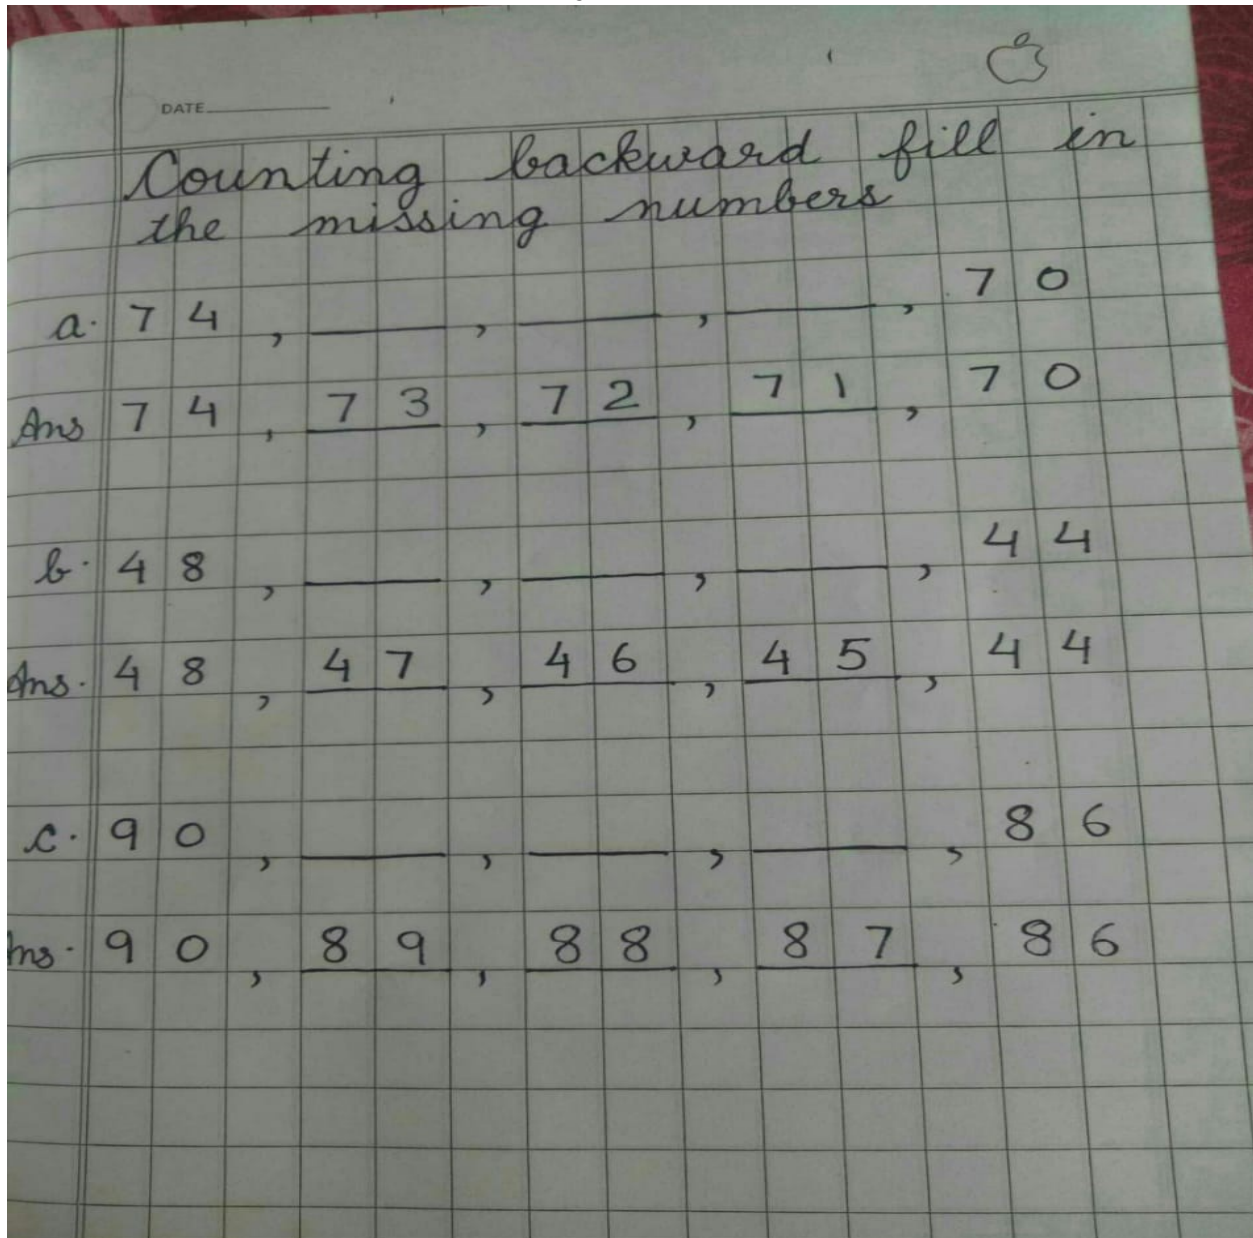 DATE
Counting backward fill in
the missing numbers
a. 74, ___, ___, ___, 70
Ans 74, 73, 72, 71, 70
b. 48, ___, ___, ___, 44
Ans. 48, 47, 46, 45, 44
c. 90, ___, ___, ___, 86
Ans. 90, 89, 88, 87, 86